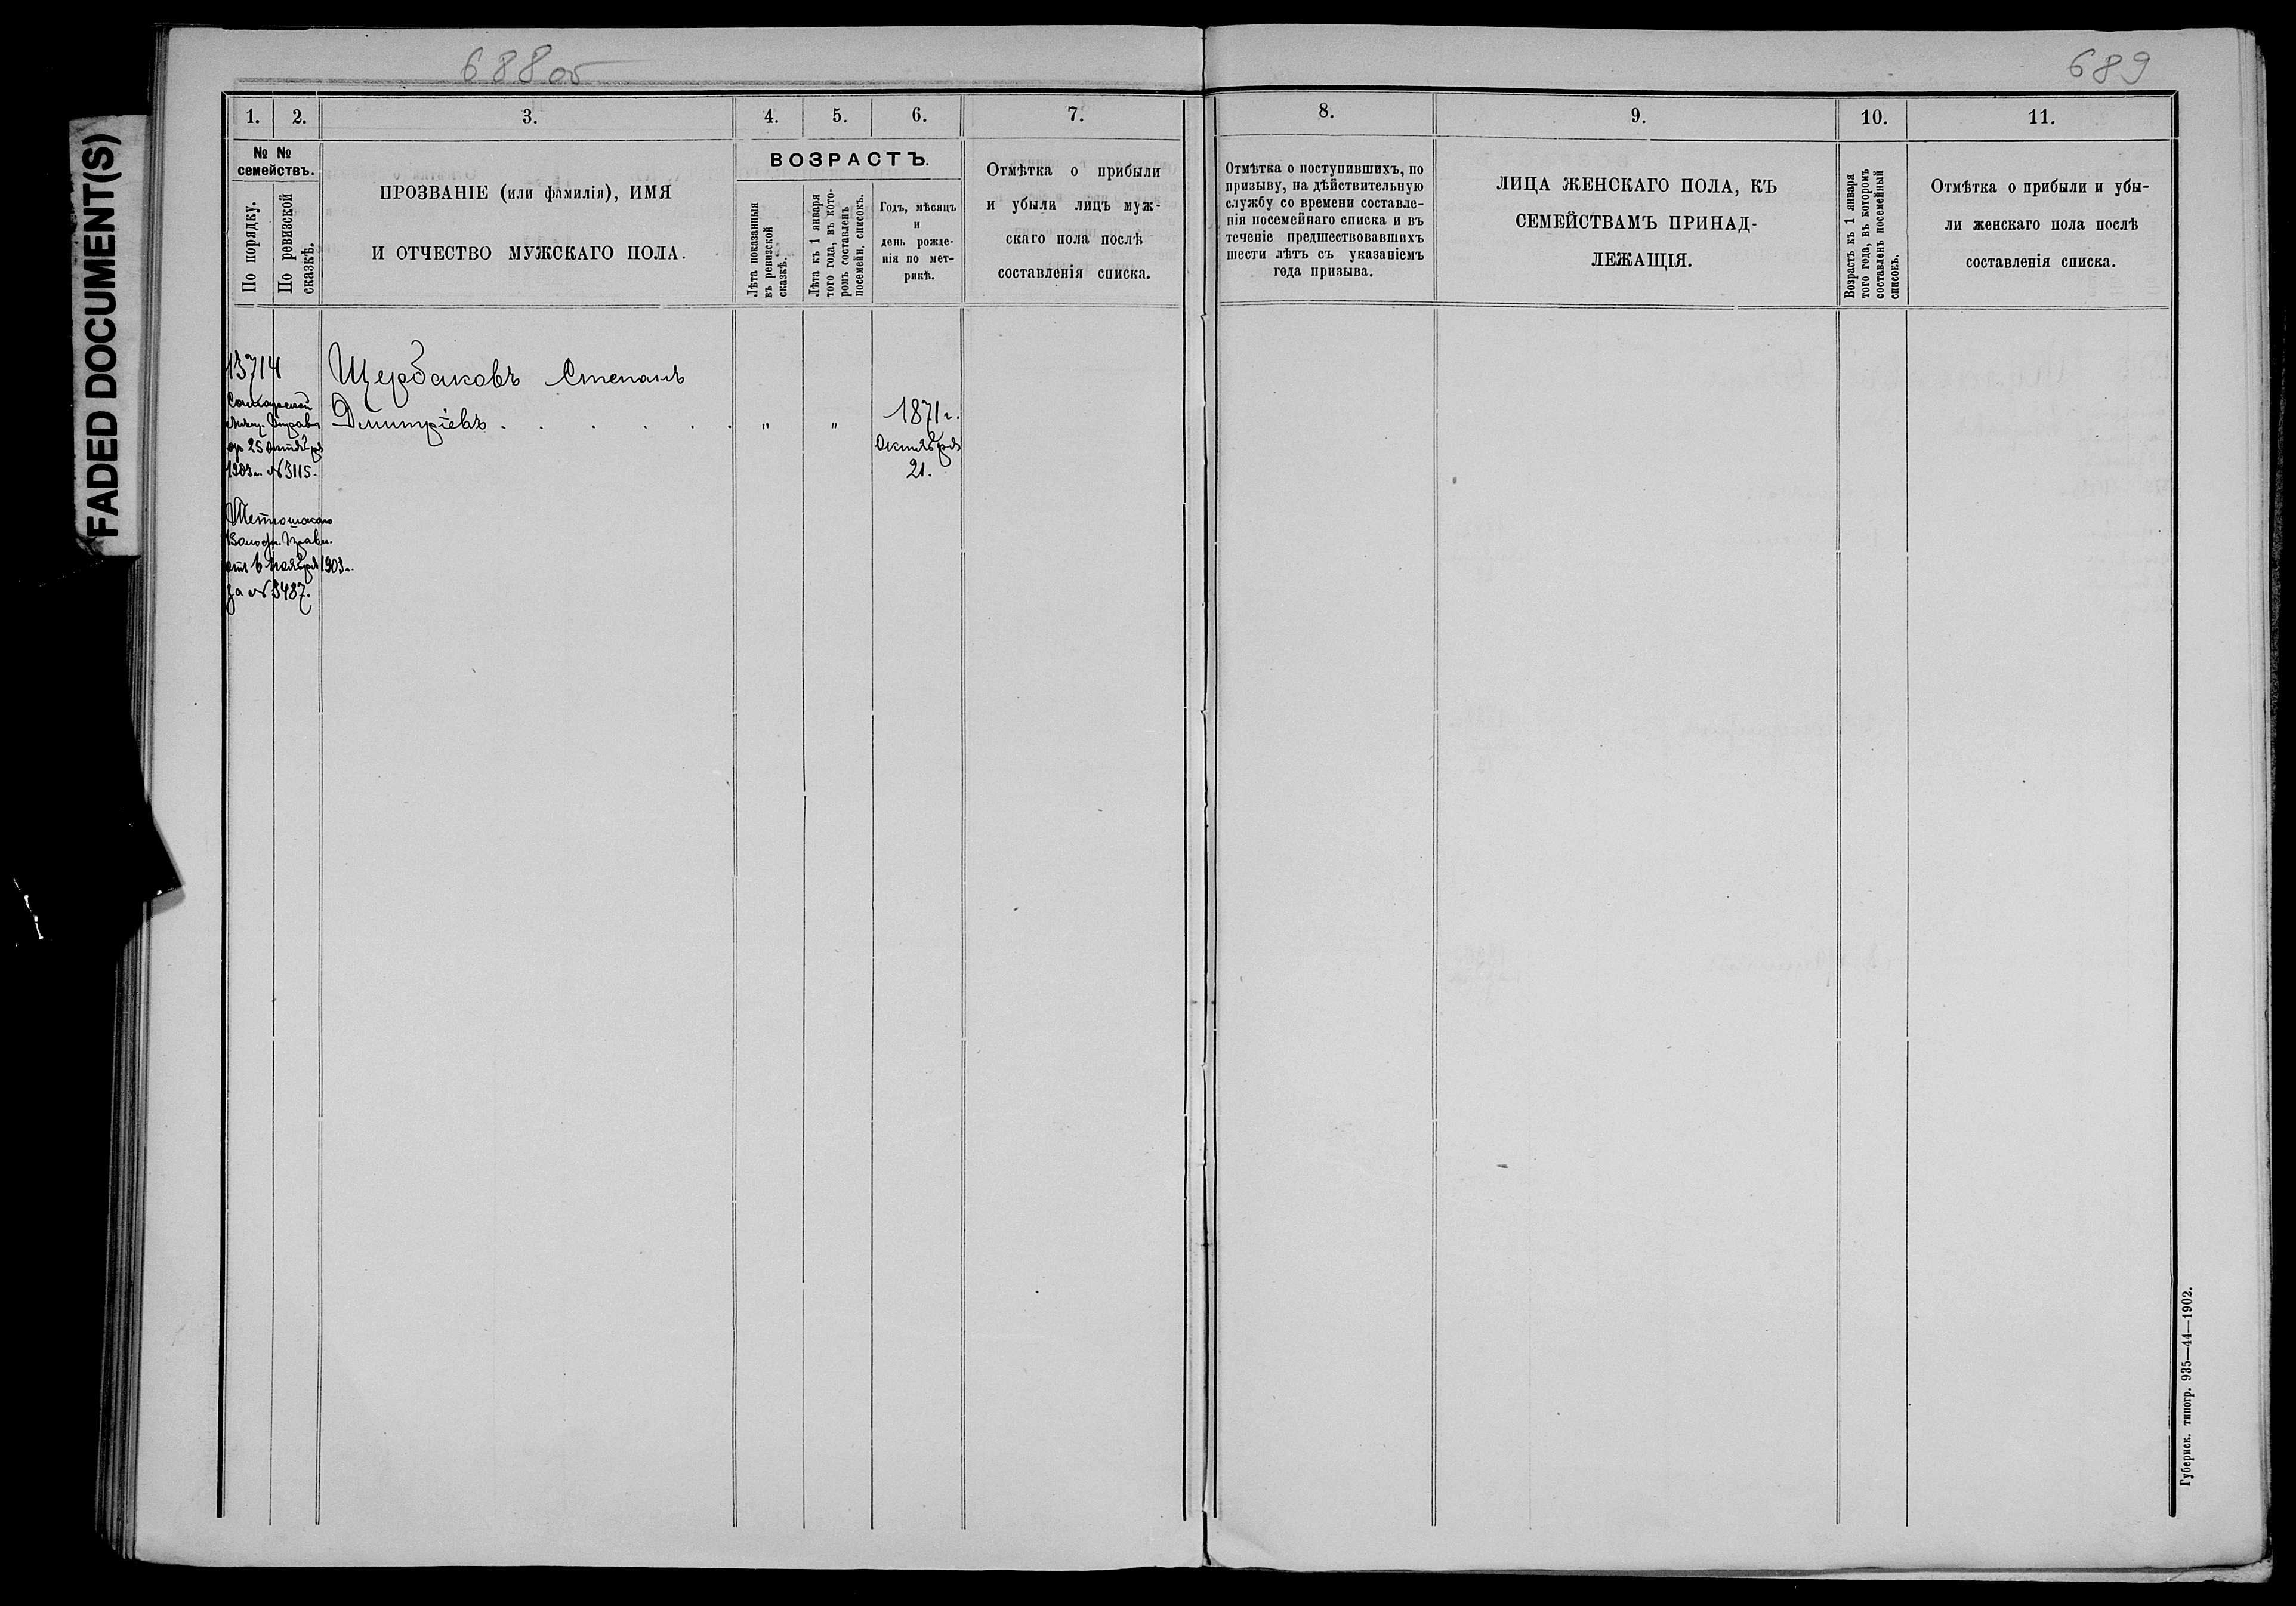 688 об
689
FADED DOCUMENT(S)
1. 2. 3. 4. 5. 6. 7. 8. 9. 10. 11.
№ №
семействъ.
По порядку.
По ревизской
сказкѣ.
ПРОЗВАНІЕ (или фамилія), ИМЯ
И ОТЧЕСТВО МУЖСКАГО ПОЛА.
ВОЗРАСТЪ.
Лѣта показанныя
въ ревизской
сказкѣ.
Лѣта къ 1 января
того года, въ кото-
ромъ составленъ
посемейн. списокъ.
Годъ, мѣсяцъ
и
день рожде-
нія по мет-
рикѣ.
Отмѣтка о прибыли
и убыли лицъ муж-
скаго пола послѣ
составленія списка.
Отмѣтка о поступившихъ, по
призыву, на дѣйствительную
службу со времени составле-
нія посемейнаго списка и въ
теченіе предшествовавшихъ
шести лѣтъ съ указаніемъ
года призыва.
ЛИЦА ЖЕНСКАГО ПОЛА, КЪ
СЕМЕЙСТВАМЪ ПРИНАД-
ЛЕЖАЩІЯ.
Возрастъ къ 1 января
того года, въ которомъ
составленъ посемейный
списокъ.
Отмѣтка о прибыли и убы-
ли женскаго пола послѣ
составленія списка.
13714
Щербаковъ Степанъ
Дмитріевъ . . . . . " "
1871 г.
Октября
21.
25 октября
1903 г. № 3115.
Волост. Правл.
отъ 6 ноября 1903 г.
за № 3487.
Губернск. типогр. 935—44—1902.